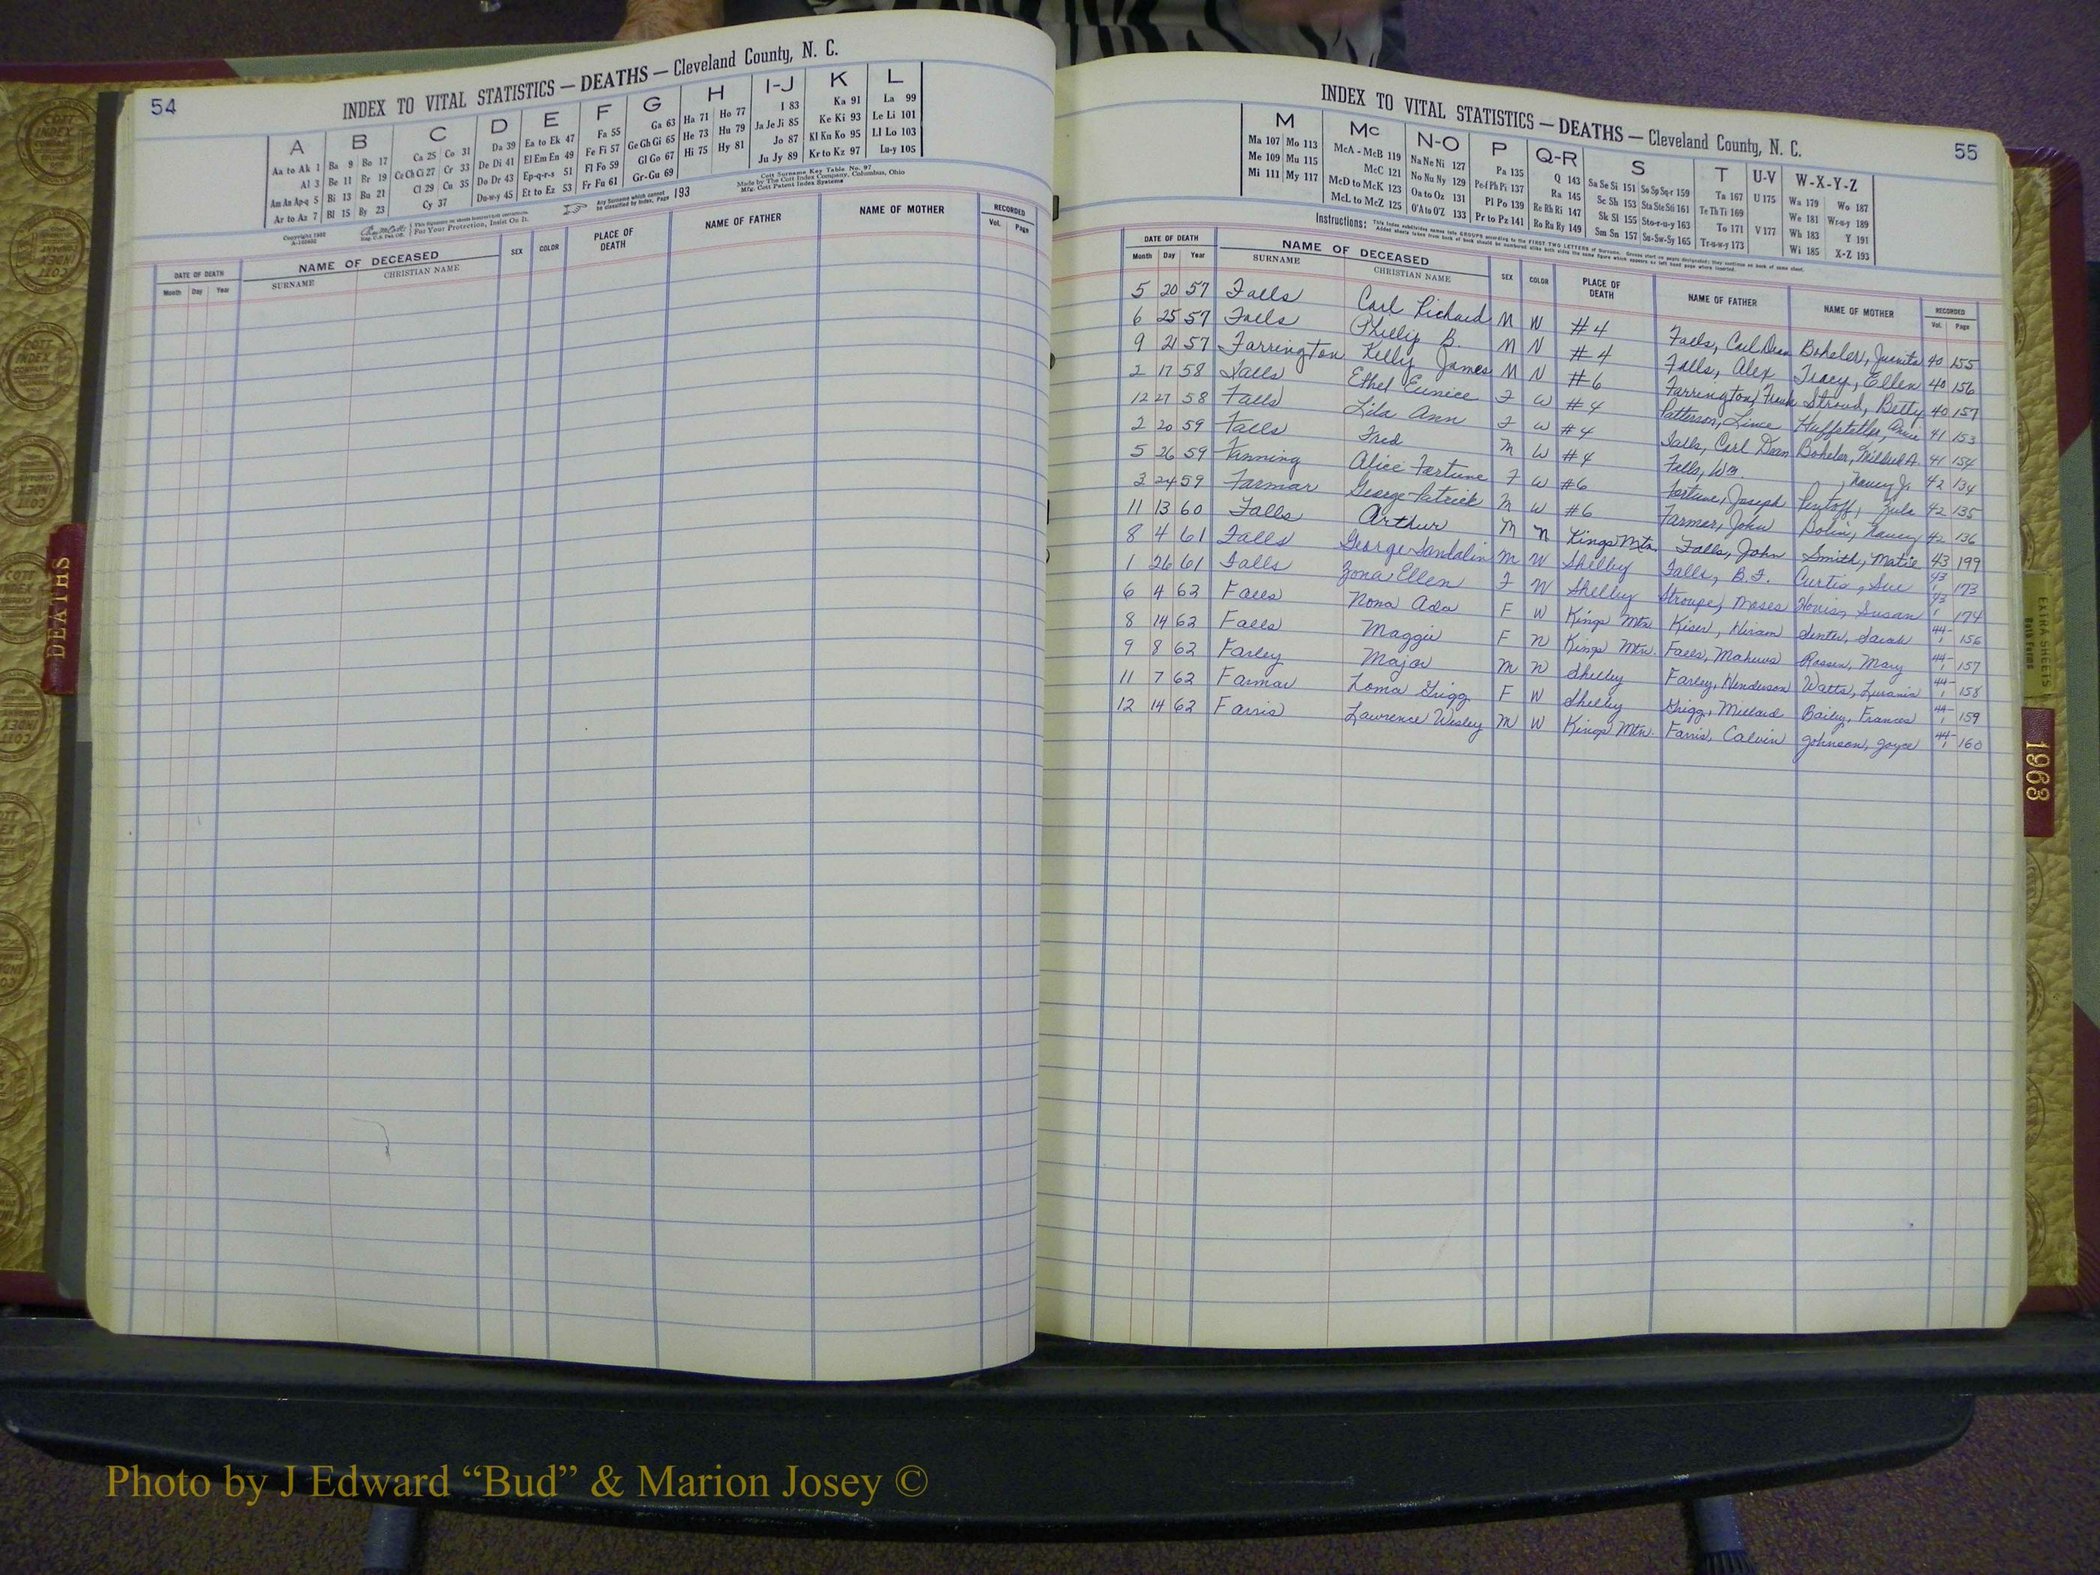 54
INDEX TO VITAL STATISTICS — DEATHS — Cleveland County, N. C.
A B C D E F G H I-J K L
Aa to Ak 1 Ba 9 Bo 17 Ca 25 Co 31 Da 39 Ea to Ek 47 Fa 55 Ga 63 Ha 71 Ho 77 I 83 Ka 91 La 99
Al 3 Be 11 Br 19 Ce Ch Ci 27 Cr 33 De Di 41 El Em En 49 Fe Fi 57 Ge Gh Gi 65 He 73 Hu 79 Ja Je Ji 85 Ke Ki 93 Le Li 101
Am An Ap-q 5 Bi 13 Bu 21 Cl 29 Cu 35 Do Dr 43 Ep-q-r-s 51 Fl Fo 59 Gl Go 67 Hi 75 Hy 81 Jo 87 Kl Kn Ko 95 Ll Lo 103
Ar to Az 7 Bl 15 By 23 Cy 37 Du-w-y 45 Et to Ez 53 Fr Fu 61 Gr-Gu 69 Ju Jy 89 Kr to Kz 97 Lu-y 105
Any Surname which cannot be classified by Index, Page 193
Cott Surname Key Table No. 97
Made by The Cott Index Company, Columbus, Ohio
Mfg. Cott Patent Index Systems
For Your Protection, Insist On It.
DATE OF DEATH NAME OF DECEASED SEX COLOR PLACE OF DEATH NAME OF FATHER NAME OF MOTHER RECORDED
Month Day Year SURNAME CHRISTIAN NAME Vol. Page
INDEX TO VITAL STATISTICS — DEATHS — Cleveland County, N. C.
55
M Mc N-O P Q-R S T U-V W-X-Y-Z
Ma 107 Mo 113 McA - McB 119 Na Ne Ni 127 Pa 135 Q 143 Sa Se Si 151 So Sp Sq-r 159 Ta 167 U 175 Wa 179 Wo 187
Me 109 Mu 115 McC 121 No Nu Ny 129 Pe-f Ph Pi 137 Ra 145 Sc Sh 153 Sta Ste Sti 161 Te Th Ti 169 We 181 Wr-u-y 189
Mi 111 My 117 McD to McK 123 Oa to Oz 131 Pl Po 139 Re Rh Ri 147 Sk Sl 155 Sto-r-u-y 163 To 171 V 177 Wh 183 Y 191
McL to McZ 125 O'A to O'Z 133 Pr to Pz 141 Ro Ru Ry 149 Sm Sn 157 Su-Sw-Sy 165 Tr-u-w-y 173 Wi 185 X-Z 193
Instructions:
DATE OF DEATH NAME OF DECEASED SEX COLOR PLACE OF DEATH NAME OF FATHER NAME OF MOTHER RECORDED
Month Day Year SURNAME CHRISTIAN NAME Vol. Page
5 20 57 Falls Carl Richard M W #4 Falls, Carl Dean Boheler, Juanita 40 155
6 25 57 Falls Phillip B. M N #4 Falls, Alex Tracy, Ellen 40 156
9 21 57 Farrington Kelly James M N #6 Farrington, Frank Stroud, Betty 40 157
2 17 58 Falls Ethel Eunice F W #4 Patterson, Huffstetler, Annie 41 153
12 27 58 Falls Lila Ann F W #4 Falls, Carl Dean Boheler, Mildred A. 41 154
2 20 59 Falls Fred M W #4 Falls, Wm , Nancy J. 42 134
5 26 59 Fanning Alice Fortune F W #6 Fortune, Joseph 42 135
3 24 59 Farmar George Patrick M W #6 Farmar, John , Nancy 42 136
11 13 60 Falls Arthur M N Kings Mtn. Falls, John Smith, Matie 43 199
8 4 61 Falls George M W Shelby Falls, B.F. Curtis, Sue 43 1 173
1 26 61 Falls Zona Ellen F W Shelby Stroupe, Moses , Susan 43 1 174
6 4 62 Falls Nona Ada F W Kings Mtn. Kiser, Hiram , Sarah 44-1 156
8 14 62 Falls Maggie F N Kings Mtn. Falls, , Mary 44-1 157
9 8 62 Farley Major M N Shelby Farley, Henderson Watts, 44-1 158
11 7 62 Farmar Loma Grigg F W Shelby Grigg, Millard Bailey, Frances 44-1 159
12 14 62 Farris Lawrence Wesley M W Kings Mtn. Farris, Calvin Johnson, Joyce 44-1 160
DEATHS
EXTRA SHEETS
1963
Photo by J Edward “Bud” & Marion Josey ©